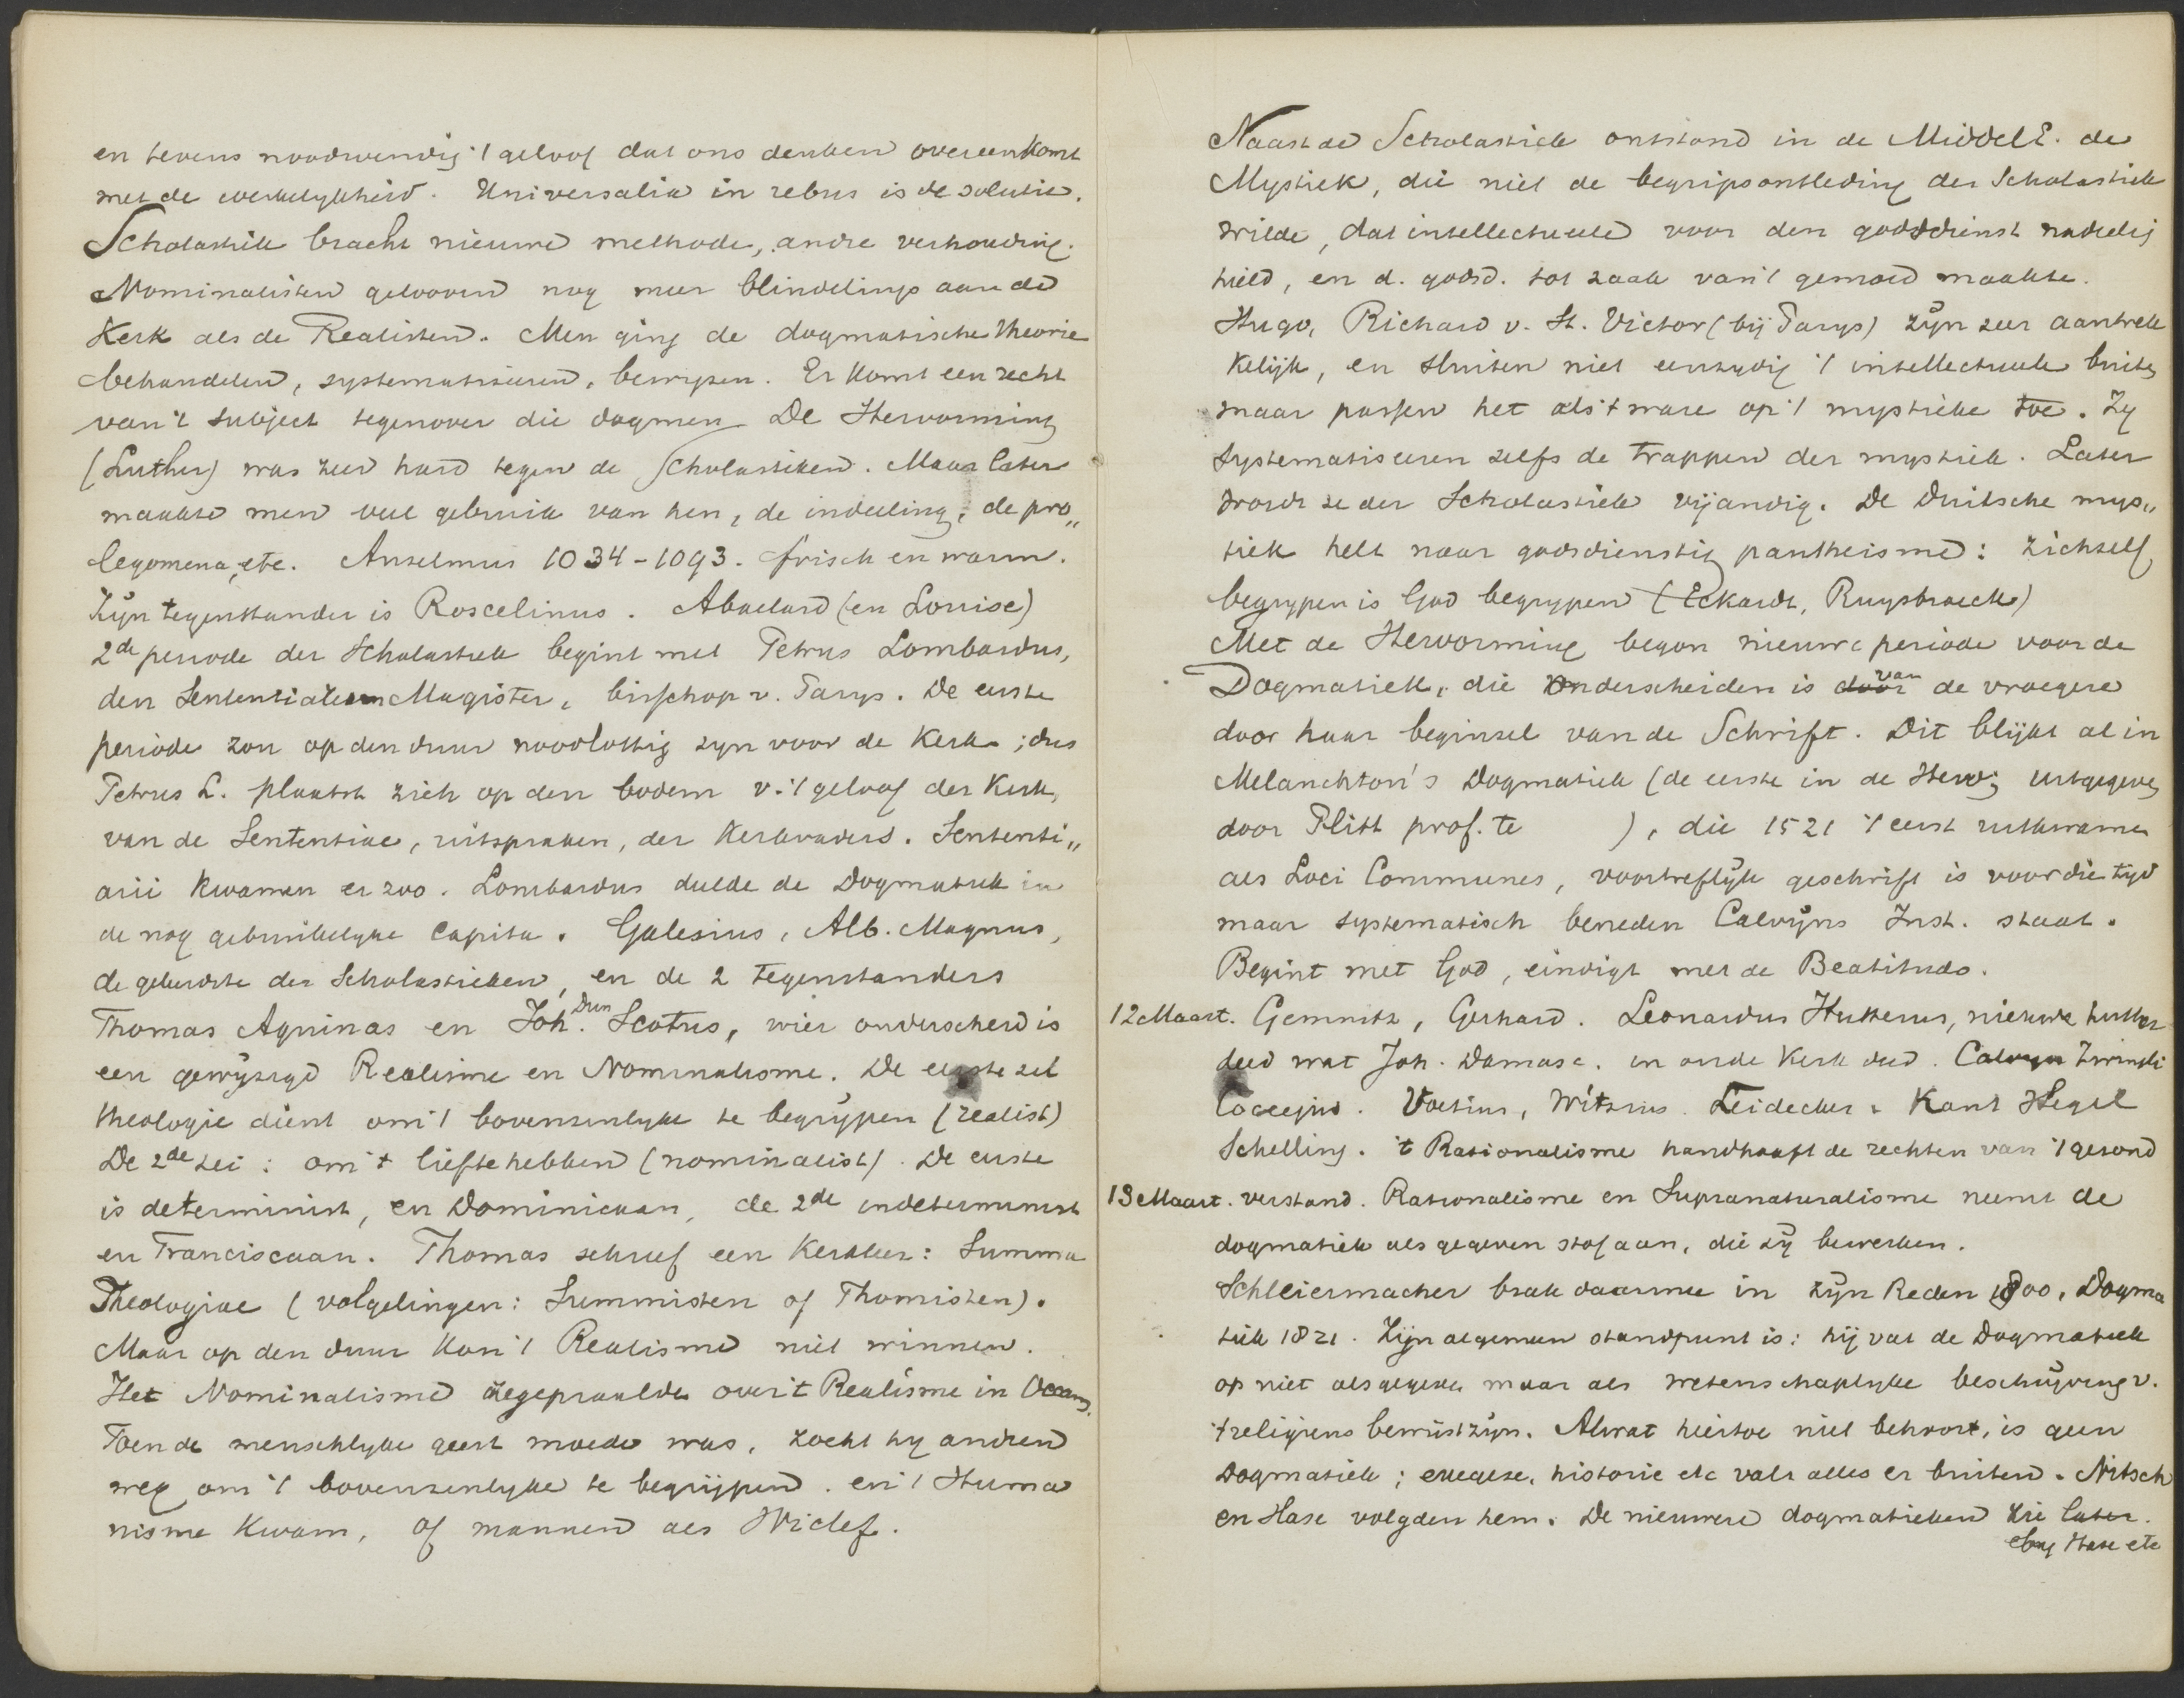 en tevens noodwendig 't geloof dat ons denken overeenkomt
met de werkelykheid. Universalia in rebus is de solutie.
Scholastiek bracht nieuwe methode, andre verhouding.
Nominalisten gelooven nog meer blindelings aan de
Kerk als de Realisten. Men ging de dogmatische theorie
behandelen, systematiseeren, bewyzen. Er komt een recht
van 't subject tegenover die dogmen. De Hervorming
(Luther) was zeer hard tegen de Scholastieken. Maar later
maakte men veel gebruik van hen, de indeeling, de pro„
legomena, etc. Anselmus 1034-1093. frisch en warm.
Zijn tegenstander is Roscelinus. Abaelard (en Louise)
2de periode der Scholastiek begint met Petrus Lombardus,
den Sententiarum Magister, bisschop v. Parys. De eerste
periode zou op den duur noodlottig zyn voor de Kerk; dus
Petrus L. plaatst zich op den bodem v. 't geloof der Kerk,
van de Sententiae, uitspraken, der Kerkvaders. Sententi„
arii kwamen er zoo. Lombardus dulde de Dogmatiek in
de nog gebruikelyke Capita. Galesius, Alb. Magnus,
de geleerdste der Scholastieken, en de 2 tegenstanders
Thomas Aquinas en Joh. Dun Scotus, wier onderscheid is
een gewyzigd Realisme en Nominalisme. De eerste zei
theologie dient om 't bovenzinlyke te begrypen (realist)
De 2de zei: om 't lief te hebben (nominalist). De eerste
is determinist, en Dominicaan, de 2de indeterminist
en Franciscaan. Thomas schreef een Kerkleer: Summa
Theologiae (volgelingen: Summisten of Thomisten).
Maar op den duur kon 't Realisme niet winnen.
Het Nominalisme zegepraalde over 't Realisme in Occam.
Toen de menschlyke geest moede was, zocht hy andren
weg om 't bovenzinlyke te begrijpen. en 't Huma
nisme kwam, of mannen als Wiclef.
Naast de Scholastiek ontstond in de MiddelE. de
Mystiek, die niet de begripsontleding der Scholastiek
wilde, dat intellectueele voor den godsdienst nadeelig
hield, en d. godsd. tot zaak van 't gemoed maakte.
Hugo, Richard v. St. Victor (bij Parys) zyn zeer aantrek
kelijk, en sluiten niet eenzydig 't intellectueele buiten
maar passen het als 't ware op 't mystieke toe. Zy
systematiseeren zelfs de trappen der mystiek. Later
wordt ze der Scholastiek vijandig. De Duitsche mys„
tiek helt naar godsdienstig pantheisme: zichzelf
begrypen is God begrypen (Eckardt, Ruysbroeck)
Met de Hervorming begon nieuwe periode voor de
Dogmatiek, die onderscheiden is door van de vroegere
door haar beginsel van de Schrift. Dit blijkt al in
Melanchton's Dogmatiek (de eerste in de Herv; uitgegeven
door Plitt prof. te ), die 1521 't eerst uitkwam
als Loci Communes, voortreflijk geschrift is voor die tijd
maar systematisch beneden Calvijns Inst. staat.
Begint met God, eindigt met de Beatitudo.
12 Maart. Gemnitz, Gerhard. Leonardus Hutterus, nieuwe luther
deed wat Joh. Damasc. in oude Kerk deed. Calvyn Zwingli
Coccejus. Voetius, Witsius. Leidecker. Kant Hegel
Schelling. 't Rationalisme handhaaft de rechten van 't gezond
13 Maart. verstand. Rationalisme en Supranaturalisme neemt de
dogmatiek als gegeven stof aan, die zy bewerken.
Schleiermacher brak daarmee in zijn Reden 1800, Dogma
tiek 1821. Zijn algemeen standpunt is: hij vat de Dogmatiek
op niet als gegeven maar als wetenschaplyke beschrijving v.
't religieus bewustzijn. Alwat hiertoe niet behoort, is geen
Dogmatiek; exegese, historie etc valt alles er buiten. Nitsch
en Hase volgden hem. De nieuwere dogmatieken zie later.
by Hase etc